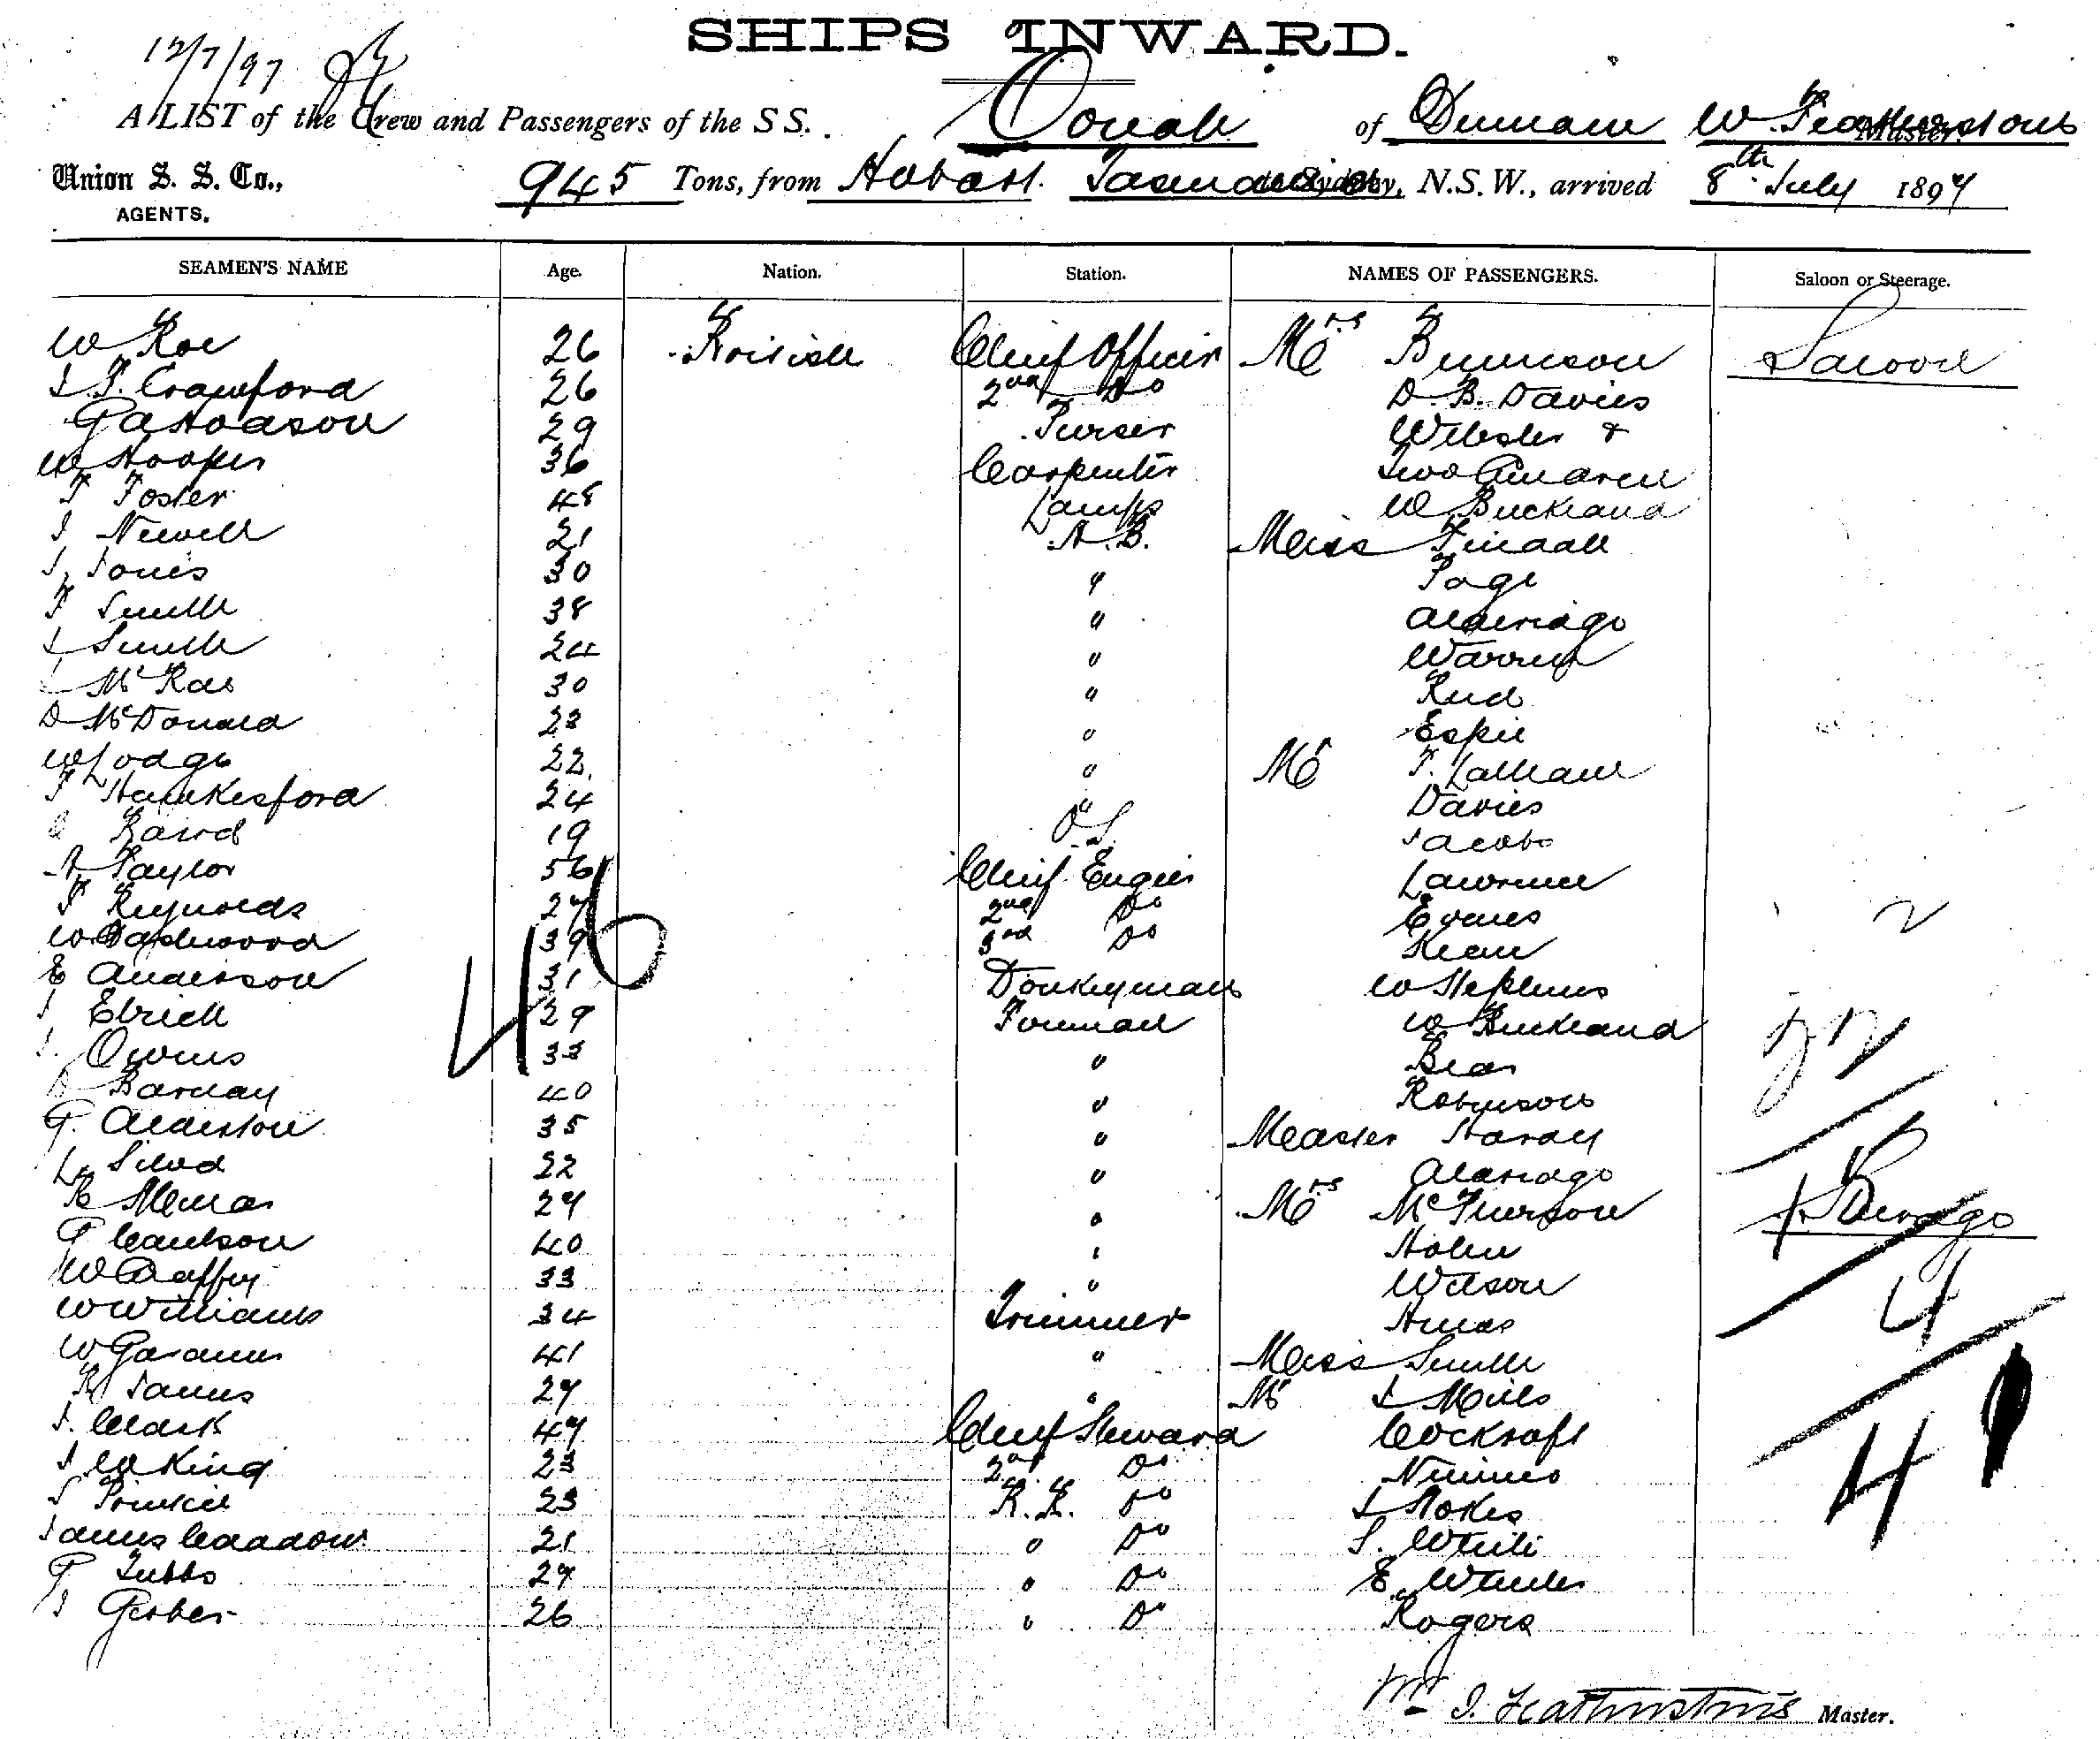 SHIPS INWARD.
12/7/97
A LIST of the Crew and Passengers of the S S. Oonah of Dunedin W. Featherstone Master.
Union S. S. Co., AGENTS.
945 Tons, from Hobart Tasmania to Sydney, N.S.W., arrived 8th July 1897
SEAMEN'S NAME Age. Nation. Station. NAMES OF PASSENGERS. Saloon or Steerage.
W Roe 26 British Chief Officer Mrs Saloon
Crawford 26 2nd Do D. B. Davies
G A Hodgson 29 Purser Webster &
W Hooper 36 Carpenter Two Children
F Foster 48 Lamps W Buckland
J Newell 21 A.B. Miss Tindall
J. Jones 30 " Page
F Smith 38 " Aldridge
J Smith 24 " Warren
McRae 30 " Reid
D McDonald 23 " Espie
W Lodge 22 " Mr T. Latham
F Hawkesford 24 " Davies
Baird 19 O.S. Jacobs
A Taylor 56 Chief Engier Lawrence
F Reynolds 27 2nd Do Evans
W Dashwood 39 3rd Do Kean
E Anderson 31 Donkeyman W Stephens
29 Foreman W Buckland
J. Owens 33 "
D Barclay 40 " Robinson
G. Alderton 35 " Master Hardy
22 " Aldridge
27 " Mrs McPherson Steerage
40 "
W Caffery 33 " Wilson
W Williams 34 Trimmer
W Gardner 41 " Miss Smith
R James 27 " Mr J Mills
J. Clark 47 Chief Steward Cockroft
J W King 23 2nd Do Nimmo
23 Do J Stokes
James 21 " Do S. White
G Tubbs 27 " Do
26 " Do Rogers
46
4
4
Featherstone Master.